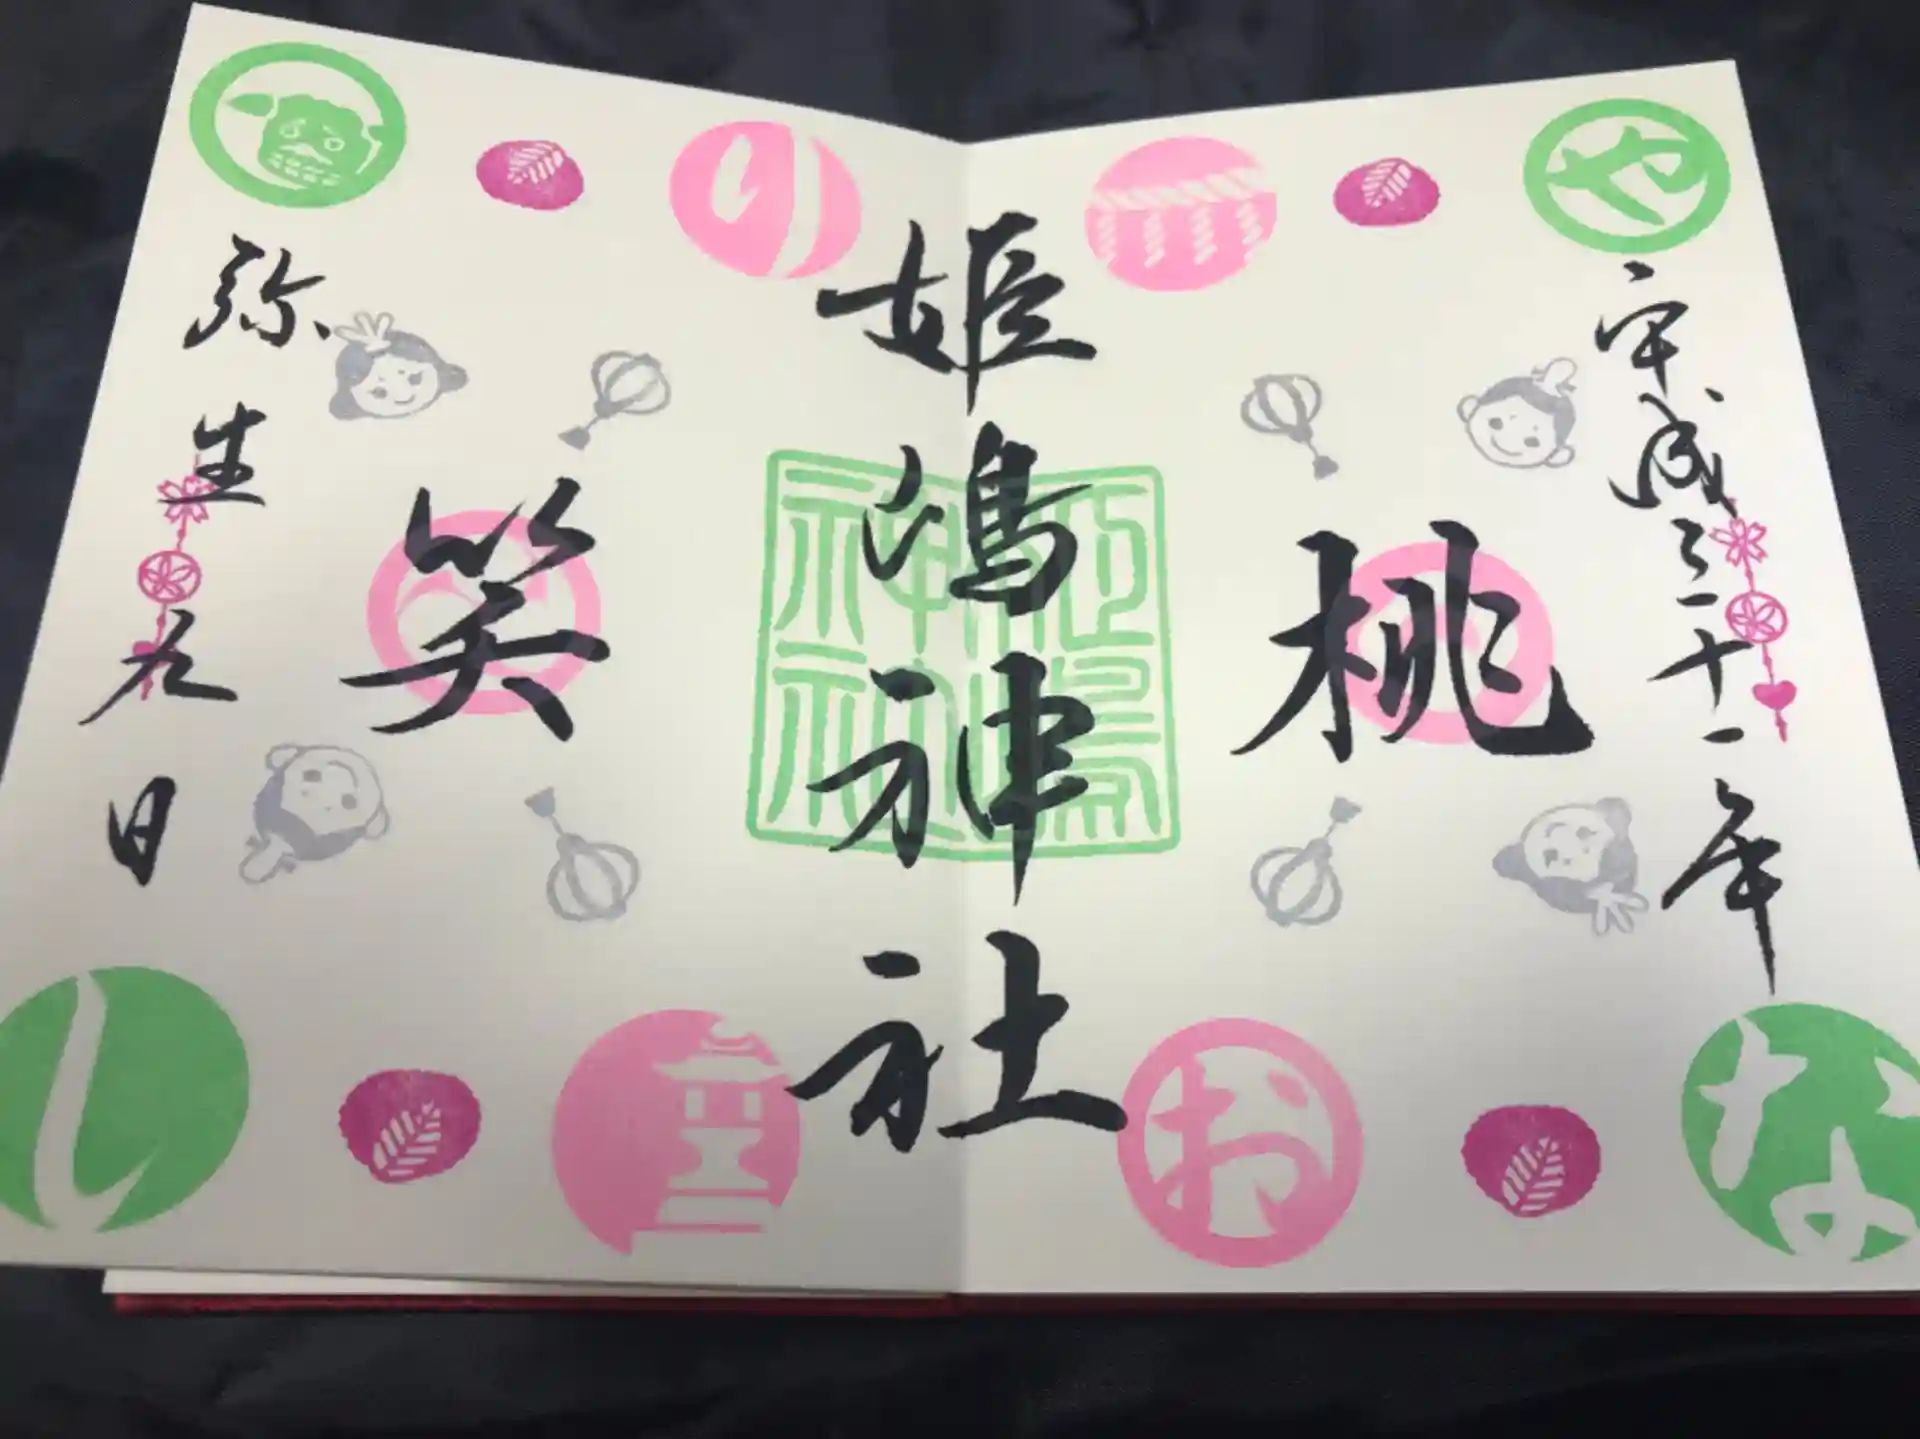 や
平成三十一年
な
桃
お
姫嶋神社
の
笑
弥生九日
し